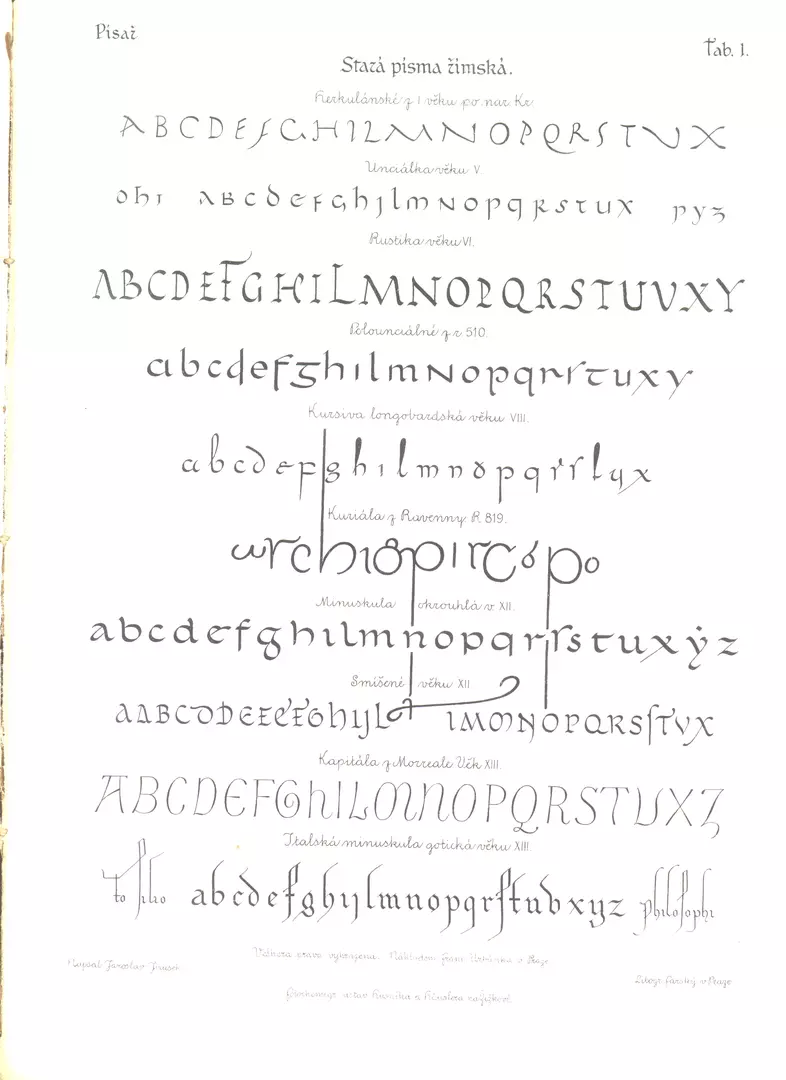 Písař
Tab. 1.
Stará písma římská.
Herkulánské z I věku po nar. Kr.
A B C D E F G H I L M N O P Q R S T V X
Unciálka věku V.
ohr a b c d e f g h j l m N o p q R s t u x p y z
Rustika věku VI.
A B C D E F G H I L M N O P Q R S T U V X Y
Polounciálné z r. 510.
a b c d e f g h ı l m N o p q r r s t u x y
Kursiva longobardská věku VIII.
a b c d e f g h ı l m n o p q r s t u x
Kuriála z Ravenny R. 819.
Minuskula okrouhlá v XII.
a b c d e f g h ı l m n o p q r r s s t u x ẏ z
Smíšené věku XII
Kapitála z Morreale Věk XIII.
A B C D E F G h I L M N O P Q R S T U X Z
Italská minuskula gotická věku XIII.
a b c d e f g h ij l m n o p q r s t u v x y z philosophi
Napsal Jaroslav
Veškera práva vyhrazena. Nákladem v Praze
Litogr. Farský v Praze